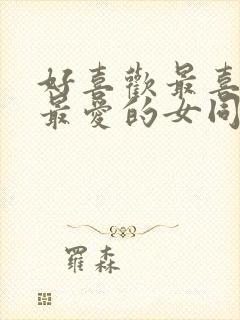 好喜歡最喜
最愛的女同
羅森